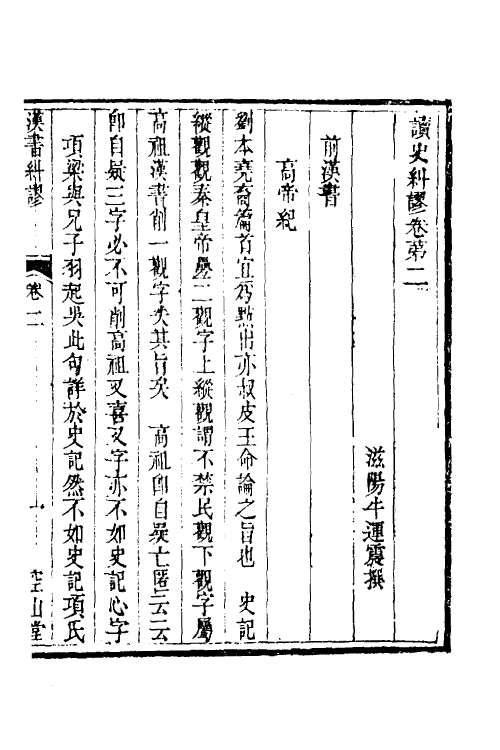 讀史糾謬卷第二
滋陽牛運震撰
前漢書
高帝紀
劉本堯裔篇首宜爲點出亦叔皮王命論之旨也　史記
縱觀觀秦皇帝疊二觀字上縱觀謂不禁民觀下觀字屬
高祖漢書削一觀字失其旨矣　高祖卽自疑亡匿云云
卽自疑三字必不可削高祖又喜又字亦不如史記心字
項梁與兄子羽起吳此句詳於史記然不如史記項氏
漢書糾謬
卷二
一
空山堂